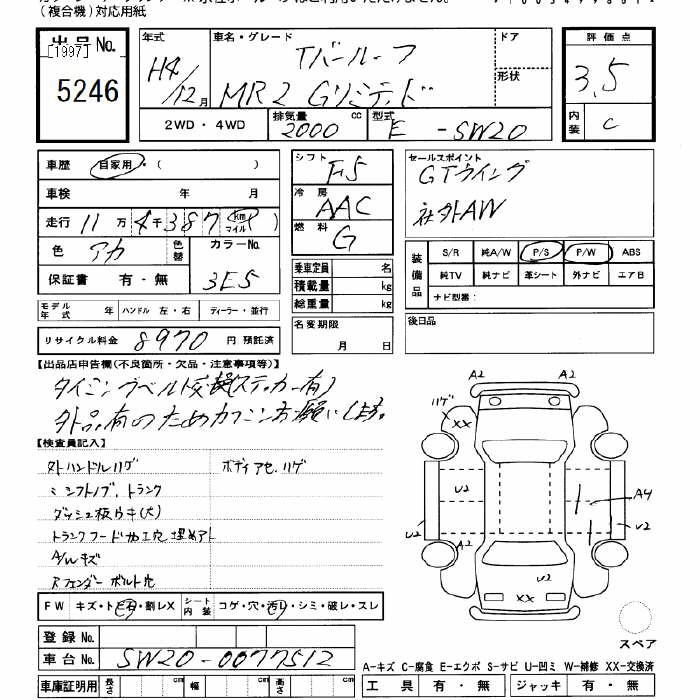 (複合機)対応用紙
出品No.
[1997]
5246
年式 H4/12月
車名・グレード Tバールーフ
MR2 Gリミテッド
ドア
形状
評価点
3.5
内装 C
2WD・4WD
排気量 2000 cc
型式 E -SW20
車歴 自家用・( )
車検 年 月
走行 11万4千387 km マイル
色 アカ 色替 カラーNo. 3E5
保証書 有・無
シフト F5
冷房 AAC
燃料 G
乗車定員 名
積載量 kg
総重量 kg
セールスポイント
GTウイング
社外AW
装備品
S/R 純A/W P/S P/W ABS
純TV 純ナビ 革シート 外ナビ エアB
ナビ型番:
モデル年式 年 ハンドル 左・右 ディーラー・並行
リサイクル料金 8970 円 預託済
名変期限
月 日
後日品
【出品店申告欄(不良箇所・欠品・注意事項等)】
タイミングベルト交換(ステッカー有)
外品有のためカクニンお願いします。
【検査員記入】
外ハンドルハゲ ボディアセ.ハゲ
ミ シフトノブ.トランク
ダッシュ板ウキ(大)
トランクフード加工穴埋めアト
A/Wキズ
フェンダー ボルト化
FW キズ・トビ石・割レX シート内装 コゲ・穴・汚レ・シミ・破レ・スレ
登録No.
車台No. SW20-0077512
車庫証明用 長さ cm 幅 cm 高さ cm
A2 A2
ハゲ
XX
U2
A4
U2 U2
A2
U2
XX
スペア
A-キズ C-腐食 E-エクボ S-サビ U-凹ミ W-補修 XX-交換済
工具 有・無 ジャッキ 有・無